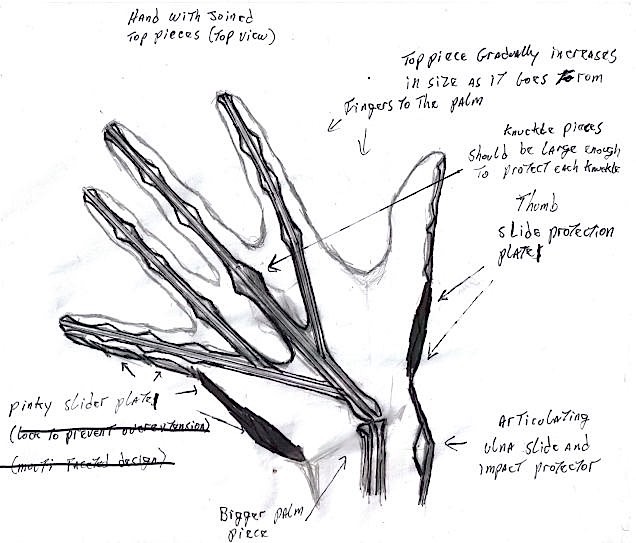 Hand with Joined
Top pieces (Top view)
Top piece Gradually increases
in size as it Goes From
Fingers to The palm
Knuckle pieces
Should be large enough
To protect each knuckle
Thumb
slide protection
plate
pinky slider plate
(lock to prevent overextension)
(multi faceted design)
Articulating
ulna slide and
impact protector
Bigger palm
piece